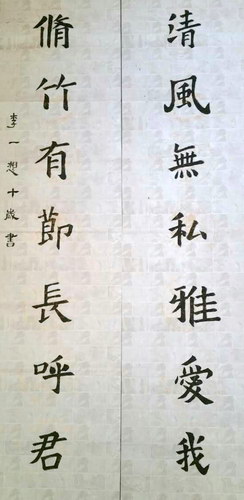 清風無私雅愛我
脩竹有節長呼君
李一想十歲書